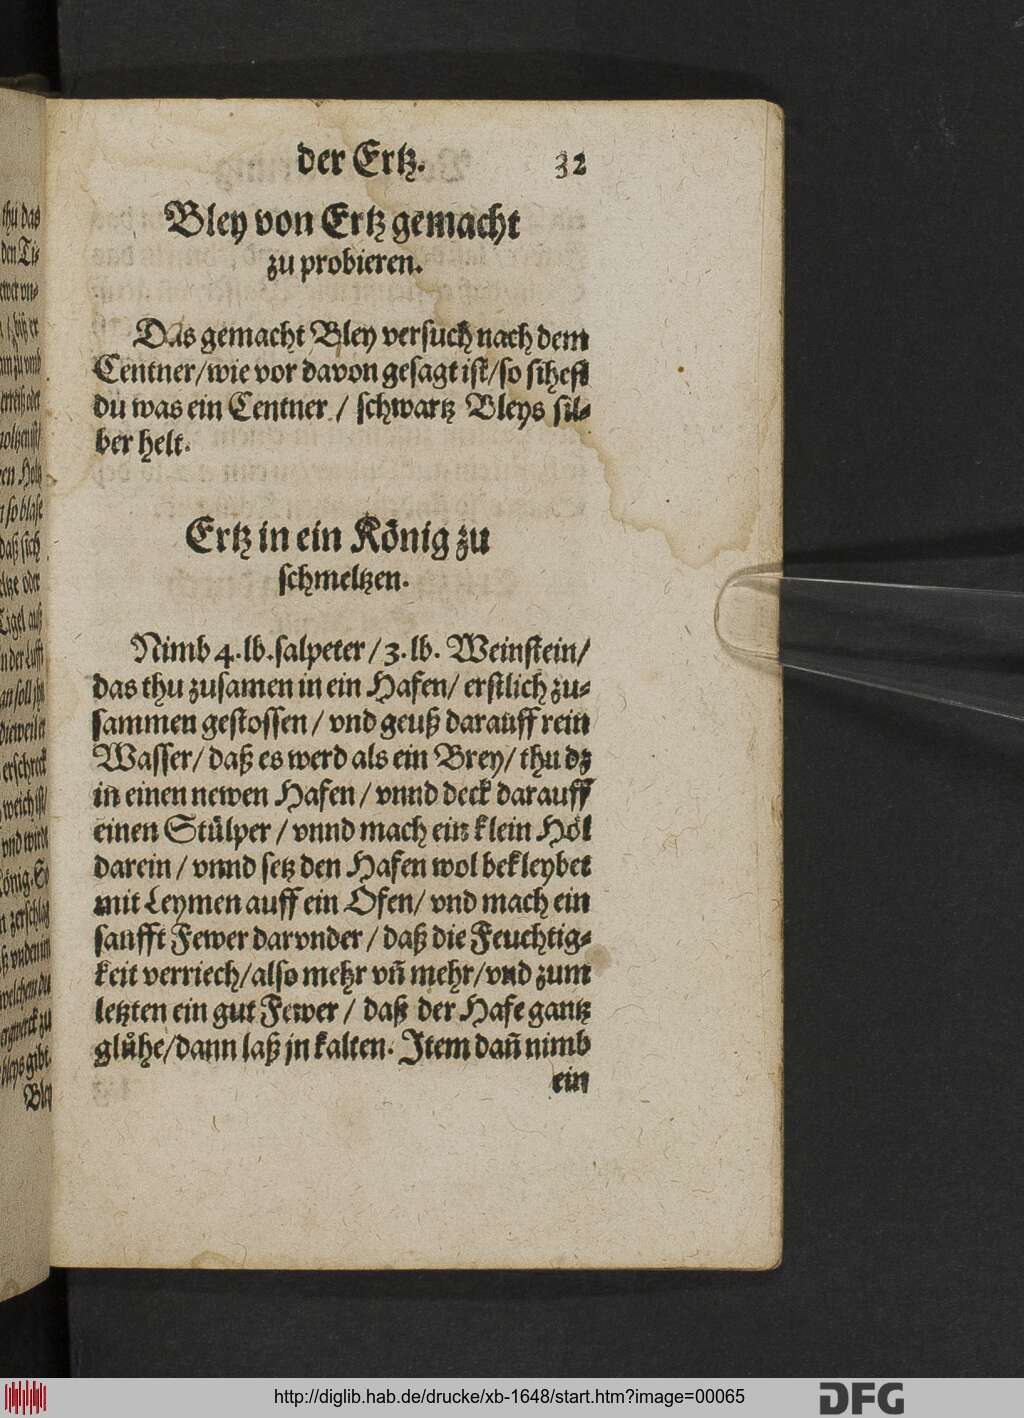 der Ertz. 32
Bley von Ertz gemacht
zu probieren.
Das gemacht Bley versuch nach dem
Centner/wie vor davon gesagt ist/so sihest
du was ein Centner / schwartz Bleys sil⸗
ber helt.
Ertz in ein König zu
schmeltzen.
Nimb 4. lb. salpeter / 3. lb. Weinstein/
das thu zusamen in ein Hafen/ erstlich zu⸗
sammen gestossen / vnd geuß darauff rein
Wasser/ daß es werd als ein Brey/ thu dz
in einen newen Hafen / vnnd deck darauff
einen Stülper / vnnd mach ein klein Höl
darein / vnnd setz den Hafen wol bekleybet
mit Leymen auff ein Ofen/ vnd mach ein
saufft Fewer darvnder / daß die Feuchtig⸗
keit verriech/also mehr vñ mehr/vnd zum
letzten ein gut Fewer / daß der Hafe gantz
glühe/dann laß jn kalten. Item dañ nimb
ein
thu das
den Ti⸗
so blase
daß sich
Tigel auß
an soll jhn
dieweil er
erschreck
weich ist/
vnd wirdt
König. So
welchem du
bleys gibt.
Bley
http://diglib.hab.de/drucke/xb-1648/start.htm?image=00065
DFG